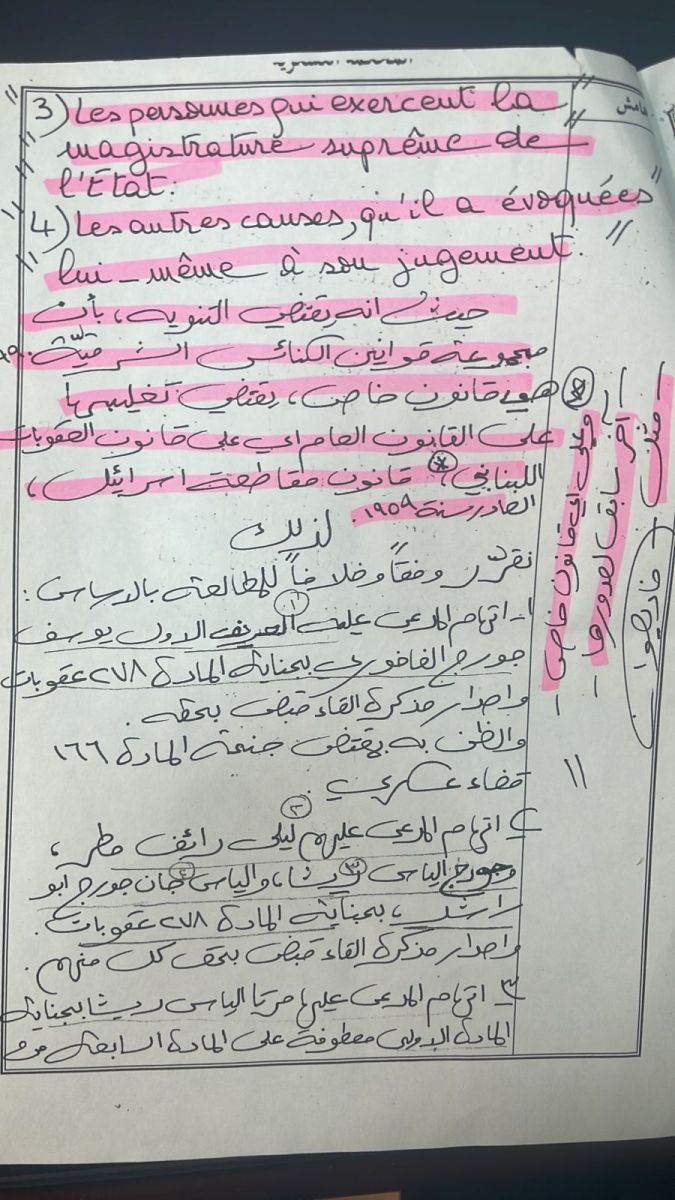 هامش
3) Les personnes qui exercent la
magistrature suprême de
l'Etat.
4) Les autres causes, qu'il a évoquées
lui-même à son jugement.
حيث انه يقتضي التنويه، بأن
مجموعة قوانين الكنائس الشرقية
هي قانون خاص، يقتضي تغليبها
على القانون العام اي على قانون العقوبات
اللبناني، قانون مقاطعة اسرائيل،
الصادر سنة
وعلى اي قانون خاص
آخر سابق لصدورها
لذلك
نقرّر وفقاً وخلافاً للمطالعة بالاساس:
١- اتهام المدعى عليه العريف الاول يوسف
جورج الفاخوري بجناية المادة ٢٧٨ عقوبات
واصدار مذكرة القاء قبض بحقه.
والظن به بمقتضى جنحة المادة ١٦٦
قضاء عسكري.
٢- اتهام المدعى عليهم ليلى رائف مطر،
وجورج الياس ريشا، والياس جان جورج ابو
راشد، بجناية المادة ٢٧٨ عقوبات.
واصدار مذكرة القاء قبض بحق كل منهم.
٣- اتهام المدعى عليها مرتا الياس ريشا بجناية
المادة الاولى معطوفة على المادة السابعة من